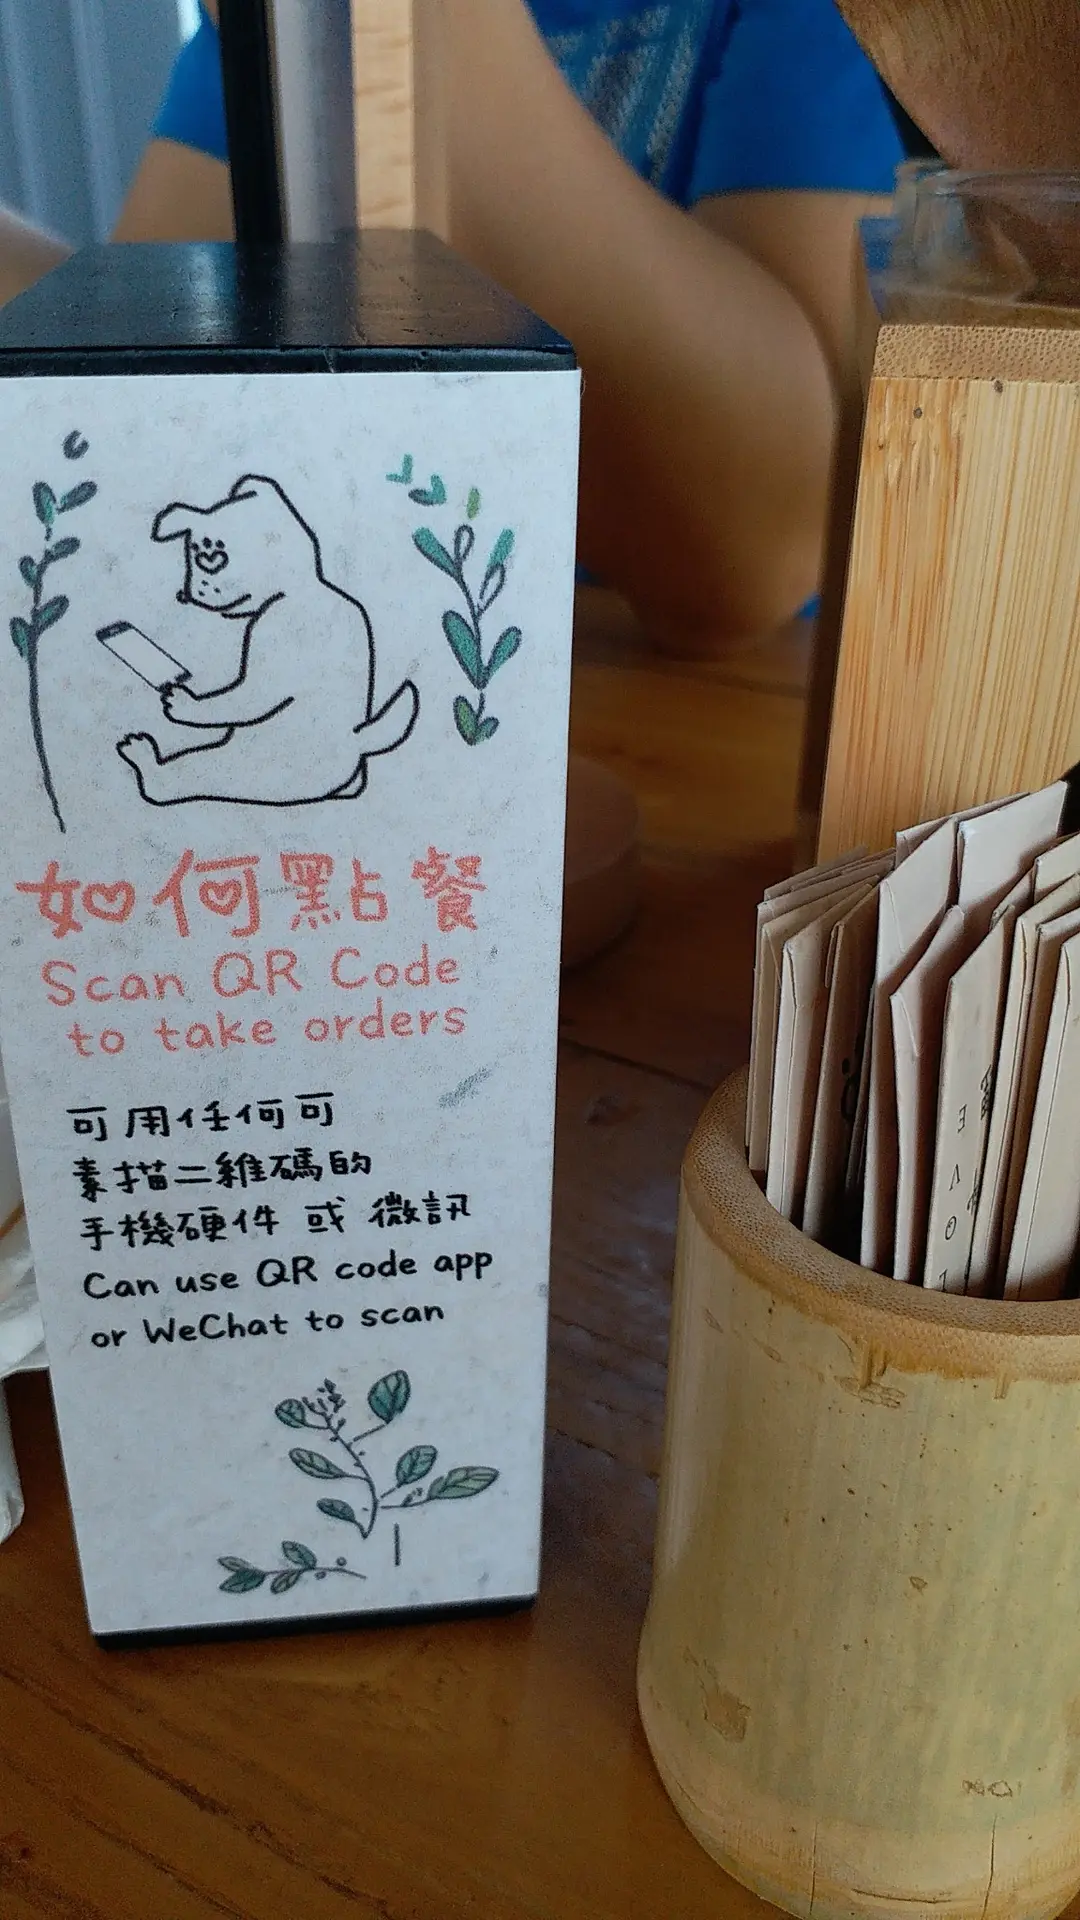 如何點餐
Scan QR Code
to take orders
可用任何可
素描二維碼的
手機硬件 或 微訊
Can use QR code app
or WeChat to scan
L O V E